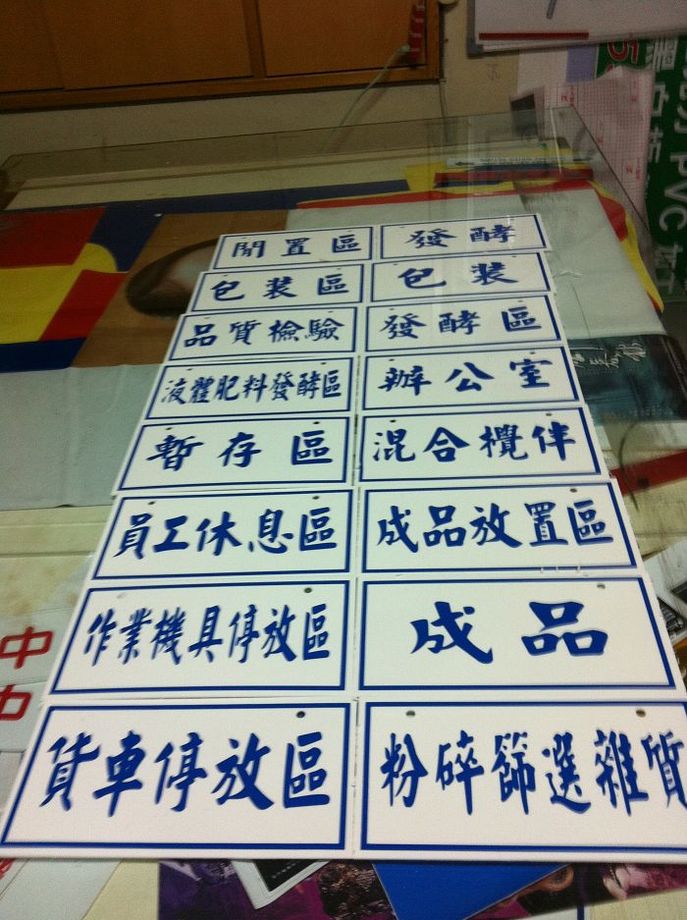 閒置區
發酵
包裝區
包裝
品質檢驗
發酵區
液體肥料發酵區
辦公室
暫存區
混合攪伴
員工休息區
成品放置區
作業機具停放區
成品
貨車停放區
粉碎篩選雜質
中
PVC